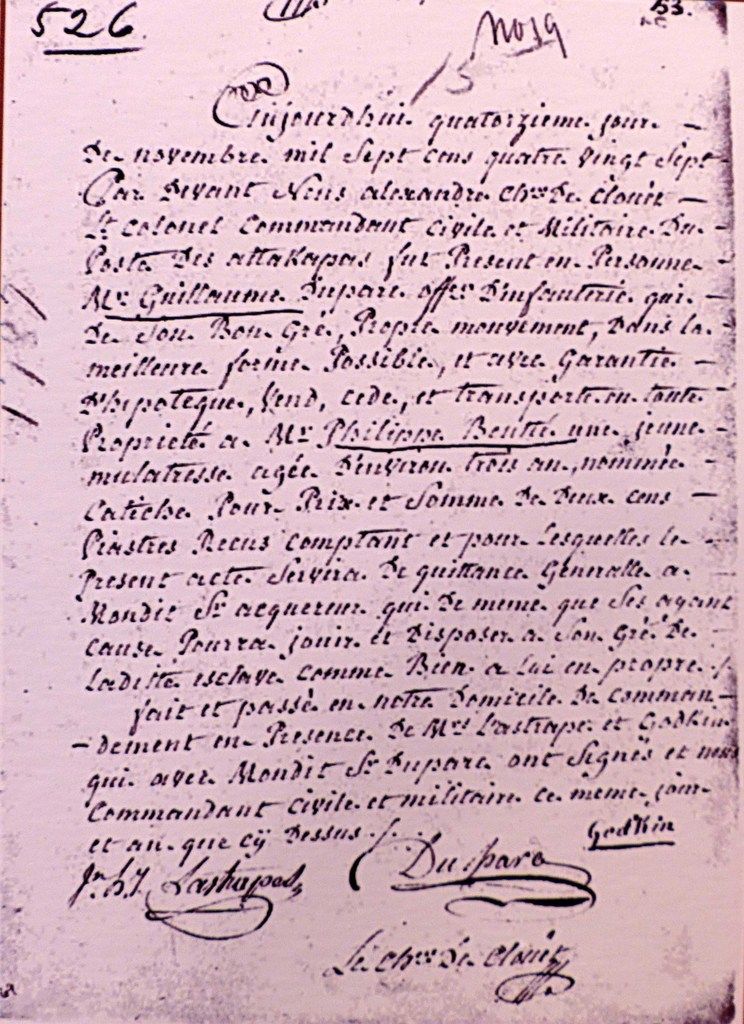 526.
53.
No 59
Aujourdhui quatorzieme jour
De novembre mil Sept cens quatre vingt Sept
Par Devant Nous alexandre Chver De Cloüet
Lt Colonel Commandant Civile et Militaire Du
Poste Des attakapas fut Present en Personne
Mr Guillaume Dupare offer D'infanterie qui
De Son Bon Gré, Propre mouvement, Dans la
meilleure forme Possible, et avec Garantie
D'hipoteque, Vend, cede, et transporte en toute
Proprieté a Mr Philippe Boutté une jeune
mulatresse agée D'environ trois an, nommée
Catiche Pour Prix et Somme De Deux cens
Piastres Recus comptant et pour Lesquelles le
Present acte Servira De quittance Generalle a
Mondit Sr acquereur qui De meme que Ses ayant
cause Pourra jouir et Disposer a Son Gré De
Laditte esclave comme Bien a Lui en propre ./.
fait et passé en notre Domicile De Comman-
-dement en Presence De Mrs Lastrape et Godkin
qui avec Mondit Sr Dupare ont Signés et nous
Commandant Civile et militaire ce meme jour
et an que cÿ Dessus ./.
Godkin
Jn h J Lastrapes
Duparc
Le Chver De Cloüet
1787